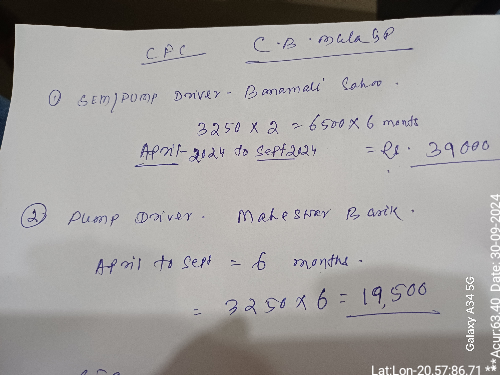 CPC C.B. Mala GP
① SEM/PUMP Driver - Banamali Sahoo.
3250 × 2 = 6500 × 6 months
April-2024 to Sept 2024 = Rs. 39000
② Pump Driver. Maheswar Barik.
April to Sept = 6 months.
= 3250 × 6 = 19,500
Galaxy A34 5G
**Acur:63.40 Date: 30-09-2024
Lat:Lon-20.57:86.71